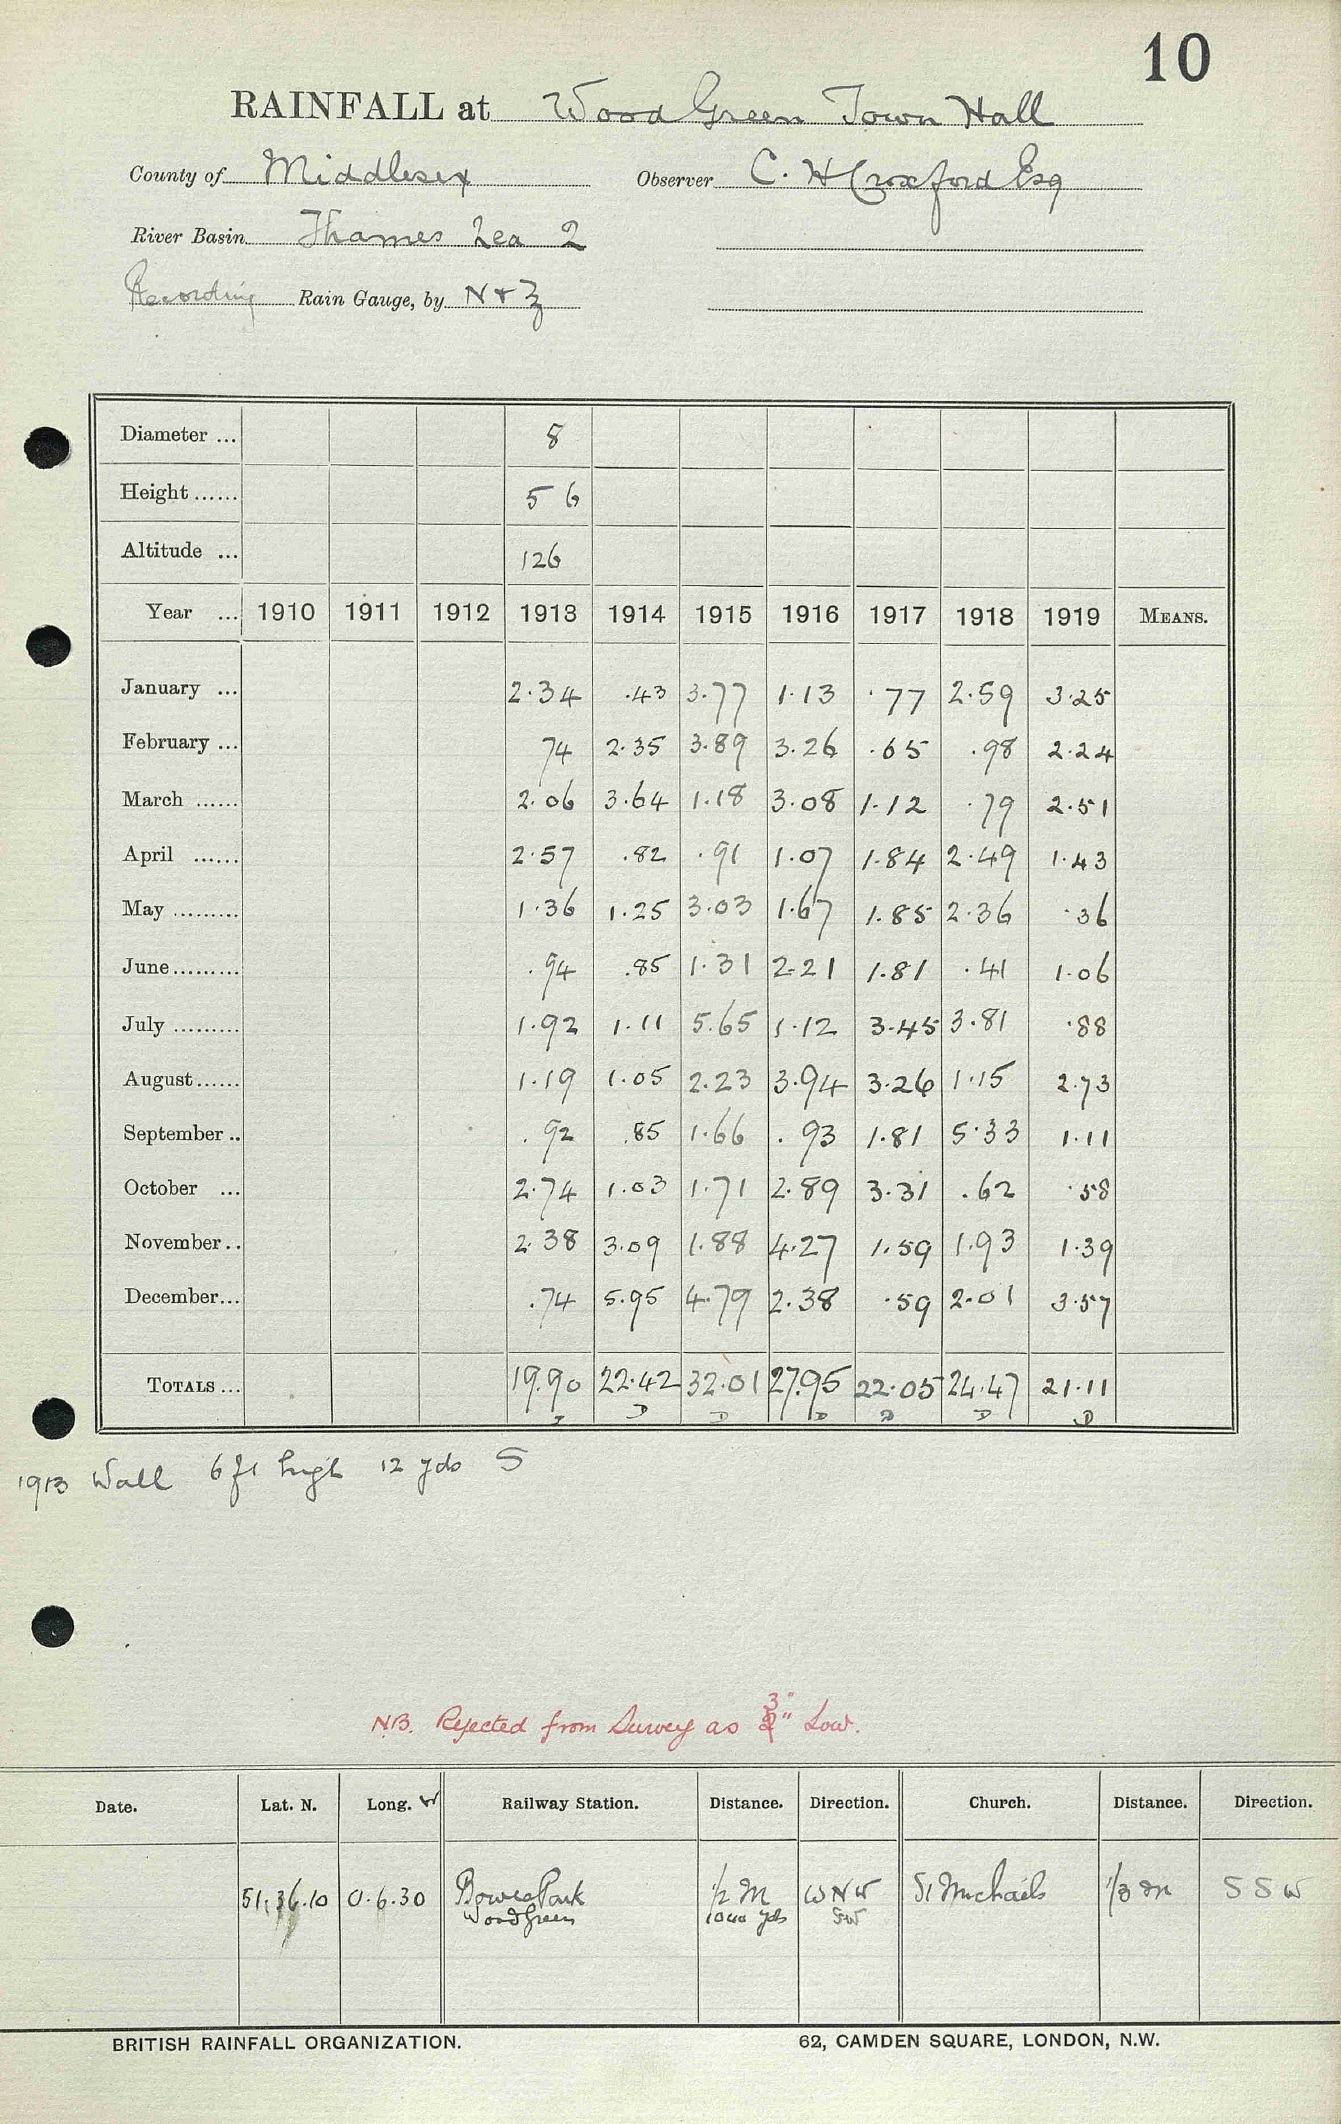 10
RAINFALL at Wood Green Town Hall
County of Middlesex Observer C. H Croxford Esq
River Basin Thames Lea 2
Recording Rain Gauge, by N & Z
Diameter ... 8
Height ...... 5 6
Altitude ... 126
Year ... 1910 1911 1912 1913 1914 1915 1916 1917 1918 1919 MEANS.
January ... 2.34 .43 3.77 1.13 .77 2.59 3.25
February ... 74 2.35 3.89 3.26 .65 .98 2.24
March ...... 2.06 3.64 1.18 3.08 1.12 .79 2.51
April ...... 2.57 .82 .91 1.07 1.84 2.49 1.43
May ......... 1.36 1.25 3.03 1.67 1.85 2.36 .36
June ......... .94 .85 1.31 2.21 1.81 .41 1.06
July ......... 1.92 1.11 5.65 1.12 3.45 3.81 .88
August ...... 1.19 1.05 2.23 3.94 3.26 1.15 2.73
September .. .92 .85 1.66 .93 1.81 5.33 1.11
October ... 2.74 1.03 1.71 2.89 3.31 .62 .58
November .. 2.38 3.09 1.88 4.27 1.59 1.93 1.39
December ... .74 5.95 4.79 2.38 .59 2.01 3.57
TOTALS ... 19.90 22.42 32.01 27.95 22.05 24.47 21.11
D D D D D D
1913 Wall 6 ft high 12 yds S
NB. Rejected from Survey as 3" Low.
Date. Lat. N. Long. W Railway Station. Distance. Direction. Church. Distance. Direction.
51.36.10 0.6.30 Bowes Park 1/2 M W N W St Michaels 1/3 m S S W
Wood Green 1000 yds SW
BRITISH RAINFALL ORGANIZATION. 62, CAMDEN SQUARE, LONDON, N.W.